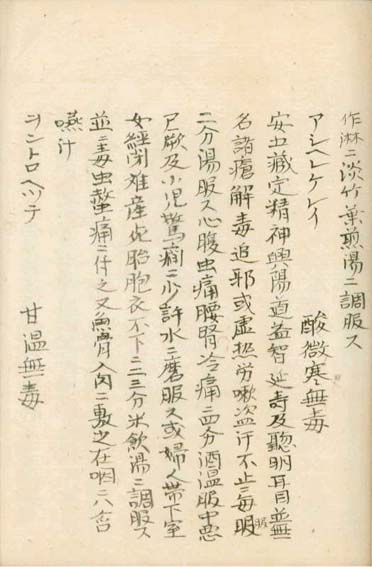 作淋ニ淡竹葉煎湯ニ調服ス
アシヘレケレイ 酸微寒無毒
安五藏定精神興陽道益智延壽及聰明耳目並無
名諸瘡解毒追邪或虚热労嗽盗汗不止ニ毎服
二分湯服ス心腹虫痛腰腎冷痛ニ四分酒温服中悪
尸厥及小児驚癇ニ少許水ニ磨服ス或婦人帶下室
女經閉难産死胎胞衣不下ニ二三分米飲湯ニ調服ス
並ニ毒虫螫痛ニ付之又魚骨入肉ニ敷之在咽ニハ含
嚥汁
ヨントロヘツテ 甘温無毒